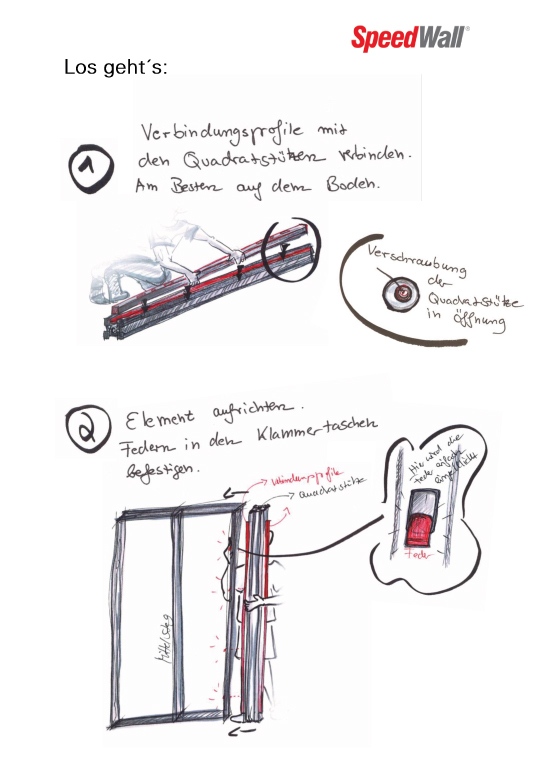 SpeedWall®
Los geht´s:
1
Verbindungsprofile mit
den Quadratstützen verbinden.
Am Besten auf dem Boden.
Verschraubung
der
Quadratstütze
in Öffnung
2
Element aufrichten.
Federn in den Klammertaschen
befestigen.
Verbindungsprofile
Quadratstütze
Hier wird die
Feder einfach
eingeklickt
Feder
Mittelsteg